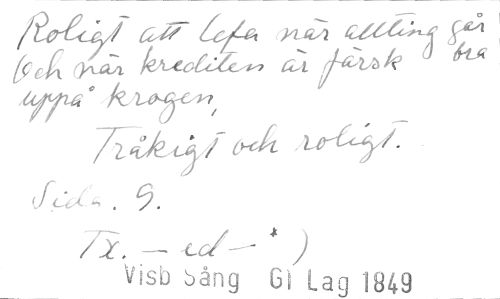 Roligt att lefa när allting går bra
Och när krediten är färsk
uppå krogen,
Tråkigt och roligt.
Sida. 9.
Tx. — ed — *)
Visb Sång Gl Lag 1849